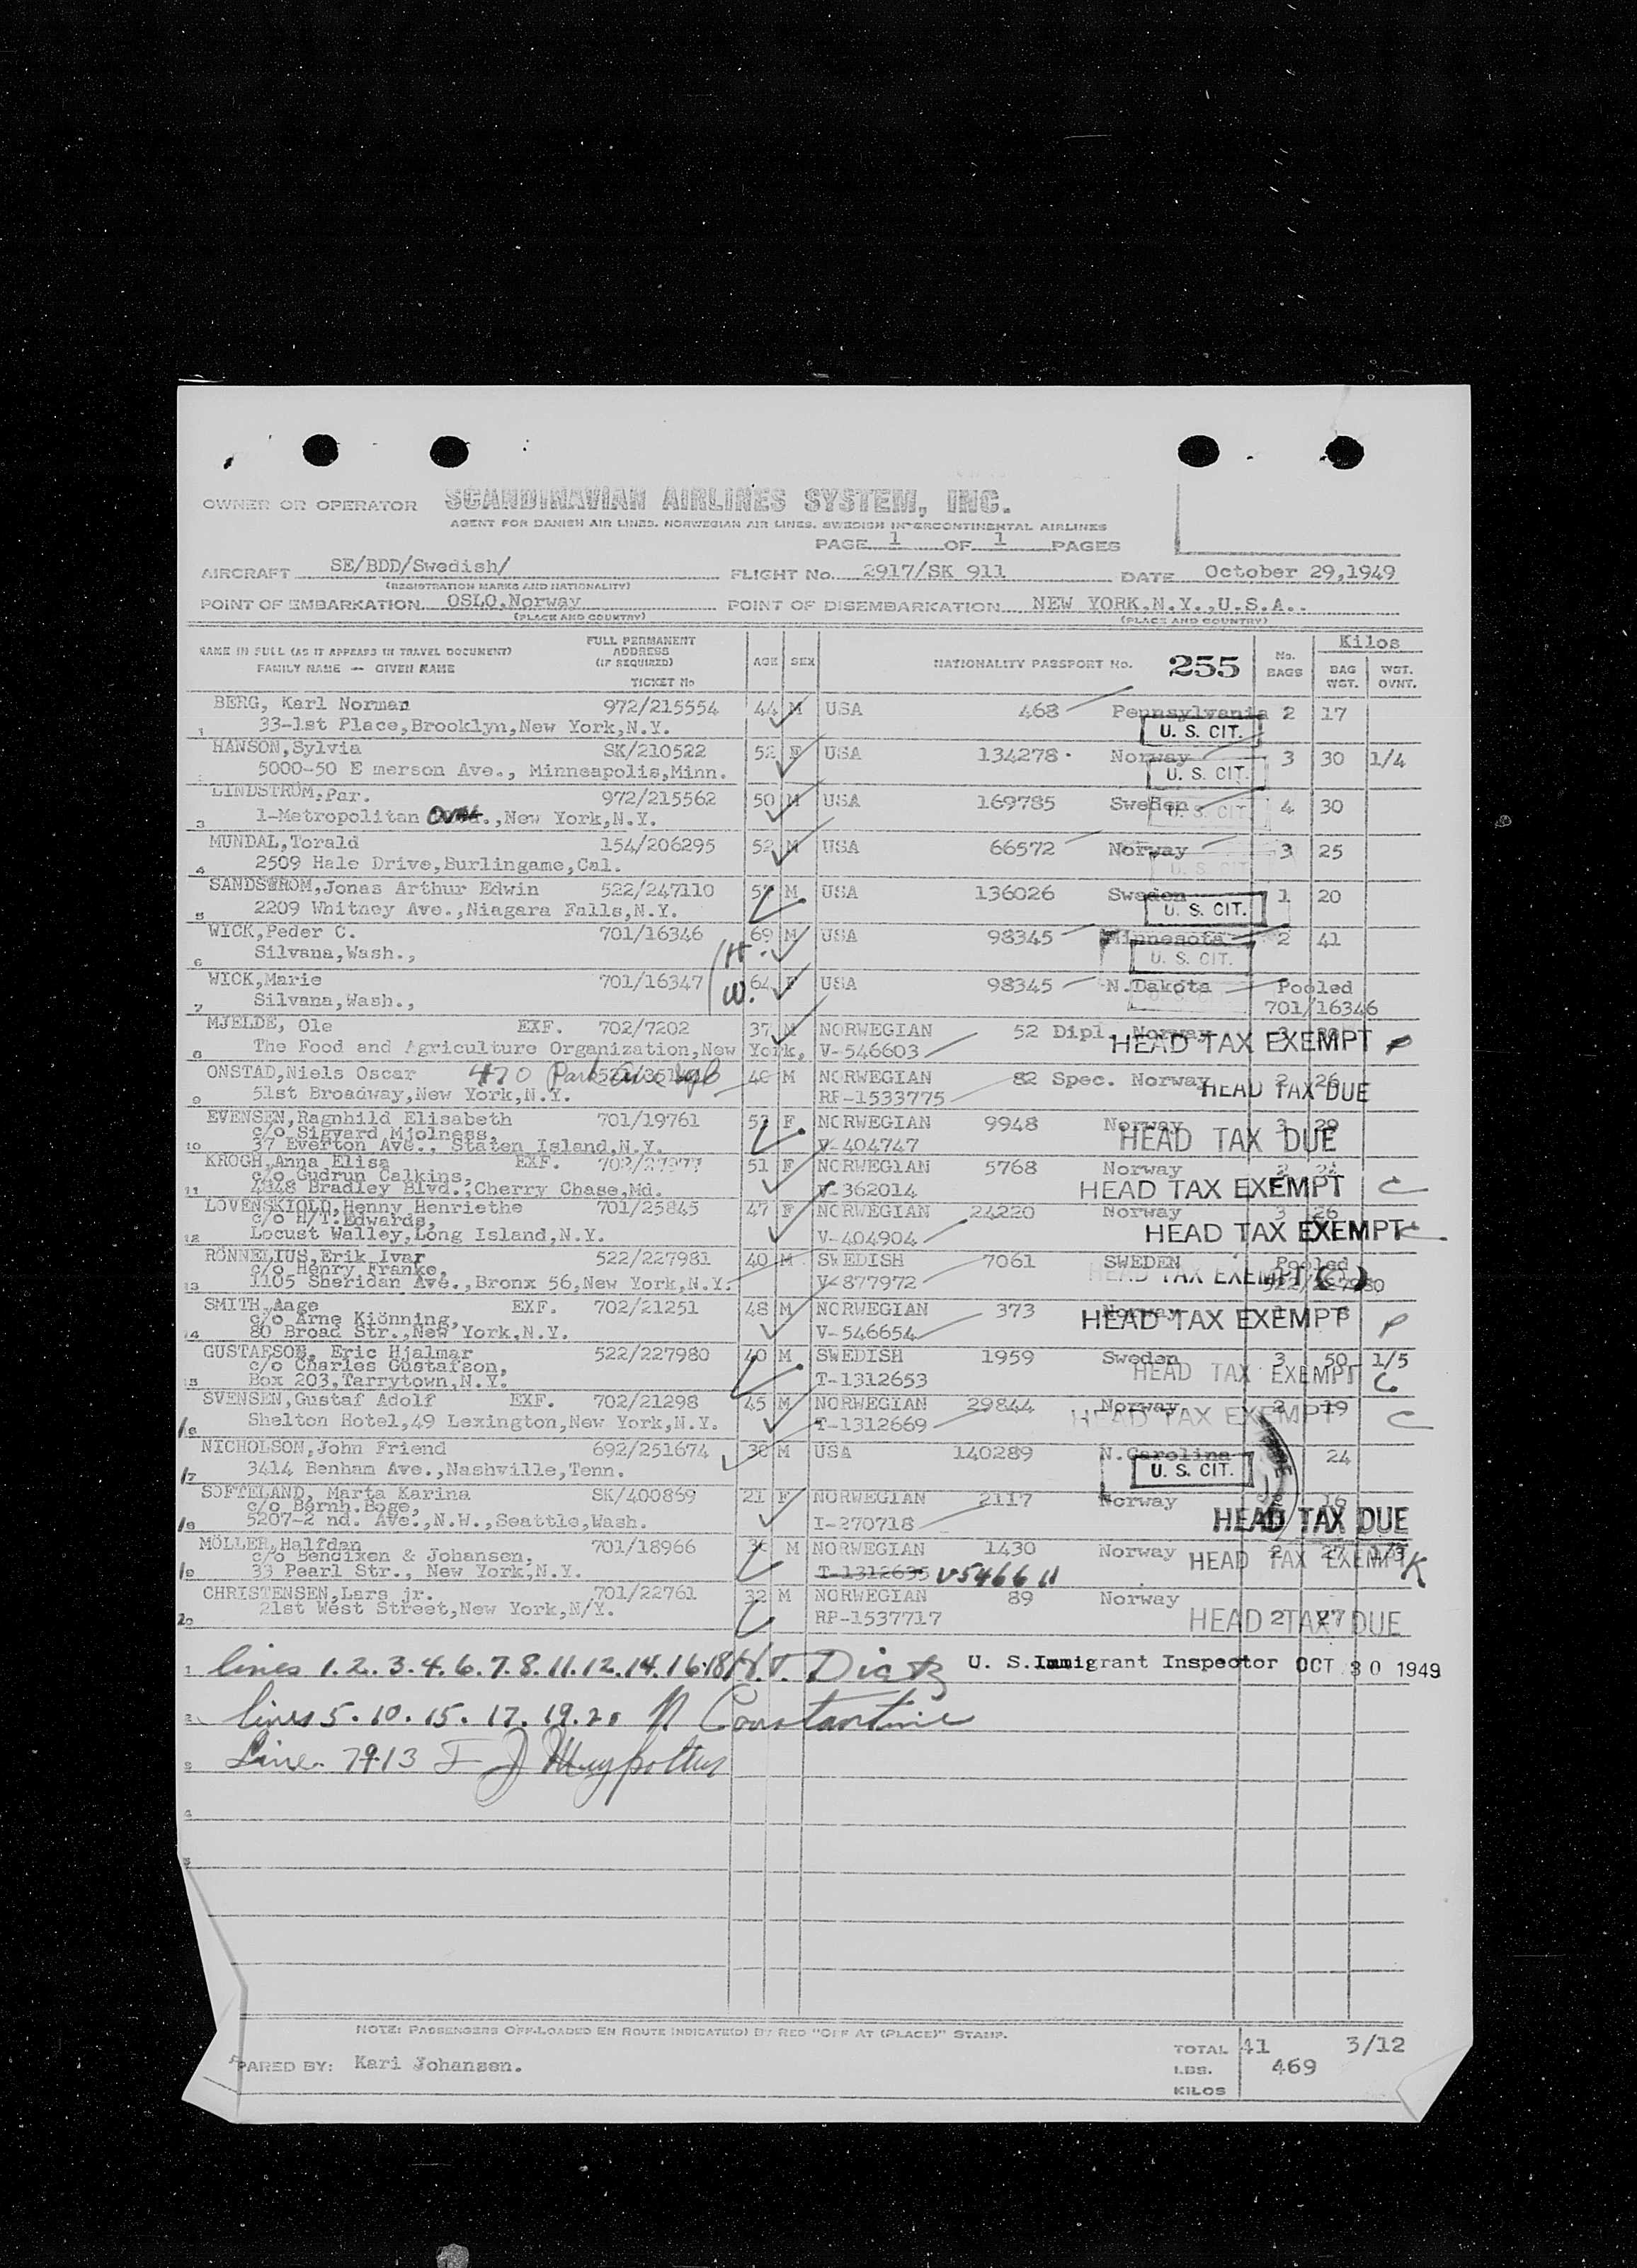 OWNER OR OPERATOR SCANDINAVIAN AIRLINES SYSTEM, INC.
AGENT FOR DANISH AIR LINES, NORWEGIAN AIR LINES, SWEDISH INTERCONTINENTAL AIRLINES
PAGE 1 OF 1 PAGES
AIRCRAFT SE/BDD/Swedish/ FLIGHT No. 2917/SK 911 DATE October 29,1949
(REGISTRATION MARKS AND NATIONALITY)
POINT OF EMBARKATION OSLO,Norway POINT OF DISEMBARKATION NEW YORK,N.Y.,U.S.A..
(PLACE AND COUNTRY) (PLACE AND COUNTRY)
NAME IN FULL (AS IT APPEARS IN TRAVEL DOCUMENT) FAMILY NAME — GIVEN NAME FULL PERMANENT ADDRESS (IF REQUIRED) TICKET No AGE SEX NATIONALITY PASSPORT No. 255 No. BAGS Kilos BAG WGT. WGT. OVNT.
BERG, Karl Norman 972/215554 44 M USA 468 Pennsylvania 2 17
1 33-1st Place,Brooklyn,New York,N.Y. U. S. CIT.
HANSON,Sylvia SK/210522 52 F USA 134278 Norway 3 30 1/4
5000-50 E merson Ave., Minneapolis,Minn. U. S. CIT.
LINDSTRÖM,Par. 972/215562 50 M USA 169785 Sweden 4 30
3 1-Metropolitan ,New York,N.Y. U. S. CIT
MUNDAL,Torald 154/206295 52 M USA 66572 Norway 3 25
4 2509 Hale Drive,Burlingame,Cal. U. S. CIT
SANDSTROM,Jonas Arthur Edwin 522/247110 M USA 136026 Sweden 1 20
5 2209 Whitney Ave.,Niagara Falls,N.Y. U. S. CIT.
WICK,Peder C. 701/16346 H. 69 M USA 98345 Minnesota 2 41
6 Silvana,Wash., U. S. CIT.
WICK,Marie 701/16347 W. 64 F USA 98345 N.Dakota Pooled
7 Silvana,Wash., 701/16346
MJELDE, Ole EXF. 702/7202 37 M NORWEGIAN 52 Dipl. Norway 3
8 The Food and Agriculture Organization,New York, V-546603 HEAD TAX EXEMPT P
ONSTAD,Niels Oscar 470 Park Ave 40 M NORWEGIAN 82 Spec. Norway 2 26
9 51st Broadway,New York,N.Y. RP-1533775 HEAD TAX DUE
EVENSEN,Ragnhild Elisabeth 701/19761 52 F NORWEGIAN 9948 Norway 3 29
c/o Sigvard Mjolness,
10 37 Everton Ave., Staten Island,N.Y. V-404747 HEAD TAX DUE
KROGH,Anna Elisa EXF. 702/27977 51 F NORWEGIAN 5768 Norway
c/o Gudrun Calkins,
11 4848 Bradley Blvd.,Cherry Chase,Md. V-362014 HEAD TAX EXEMPT C
LOVENSKIOLD,Henny Henriethe 701/25845 47 F NORWEGIAN 24220 Norway 3 26
c/o H/T.Edwards,
12 Locust Walley,Long Island,N.Y. V-404904 HEAD TAX EXEMPT C
RÖNNELIUS,Erik Ivar 522/227981 40 M SWEDISH 7061 SWEDEN Pooled
c/o Henry Franke,
13 1105 Sheridan Ave.,Bronx 56,New York,N.Y. V-877972 HEAD TAX EXEMPT 522/227980
SMITH,Aage EXF. 702/21251 48 M NORWEGIAN 373 Norway 8
c/o Arne Kjönning,
14 80 Broad Str.,New York,N.Y. V-546654 HEAD TAX EXEMPT P
GUSTAFSON, Eric Hjalmar 522/227980 40 M SWEDISH 1959 Sweden 3 50 1/5
c/o Charles Gustafson,
15 Box 203,Tarrytown,N.Y. T-1312653 HEAD TAX EXEMPT C
SVENSEN,Gustaf Adolf EXF. 702/21298 45 M NORWEGIAN 29844 Norway 2 19
16 Shelton Hotel,49 Lexington,New York,N.Y. T-1312669 HEAD TAX EXEMPT C
NICHOLSON,John Friend 692/251674 30 M USA 140289 N.Carolina 24
17 3414 Benham Ave.,Nashville,Tenn. U. S. CIT.
SOFTELAND, Marta Karina SK/400869 21 F NORWEGIAN 2117 Norway 16
c/o Bernh.Boge,
18 5207-2 nd. Ave.,N.W.,Seattle,Wash. I-270718 HEAD TAX DUE
MÖLLER,Halfdan 701/18966 M NORWEGIAN 1430 Norway 2 27 1/3
c/o Bendixen & Johansen,
19 39 Pearl Str., New York,N.Y. T-1312635 V546611 HEAD TAX EXEMPT K
CHRISTENSEN,Lars jr. 701/22761 32 M NORWEGIAN 89 Norway
20 21st West Street,New York,N/Y. RP-1537717 HEAD TAX DUE 2 27
1 lines 1.2.3.4.6.7.8.11.12.14.16.18 H.J. Dietz U. S. Immigrant Inspector OCT 30 1949
2 lines 5.10.15.17.19.20 N Constantine
3 Line
4
5
NOTE: PASSENGERS OFF-LOADED EN ROUTE INDICATE(D) BY RED "OFF AT (PLACE)" STAMP.
PARED BY: Kari Johansen. TOTAL 41 3/12
LBS. 469
KILOS